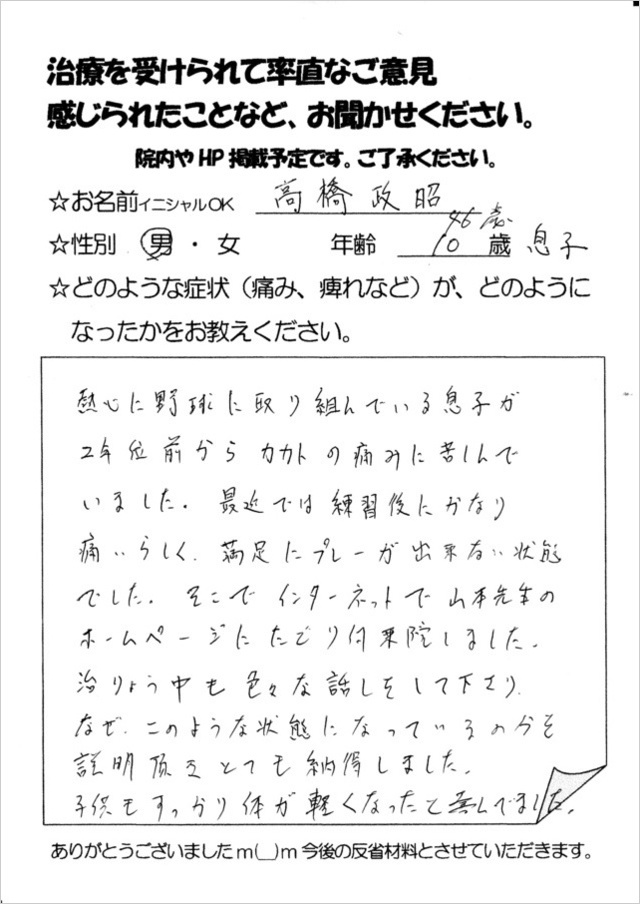 治療を受けられて率直なご意見
感じられたことなど、お聞かせください。
院内や HP 掲載予定です。ご了承ください。
☆お名前イニシャルOK 高橋政昭
46歳
☆性別 男・女 年齢 10 歳 息子
☆どのような症状（痛み、痺れなど）が、どのように
なったかをお教えください。
熱心に野球に取り組んでいる息子が
2年位前からカカトの痛みに苦しんで
いました。最近では練習後にかなり
痛いらしく、満足にプレーが出来ない状態
でした。そこでインターネットで山本先生の
ホームページにたどり付来院しました。
治りょう中も色々な話しをして下さり、
なぜ、このような状態になっているのかを
説明頂きとても納得しました。
子供もすっかり体が軽くなったと喜んでました。
ありがとうございましたm(__)m今後の反省材料とさせていただきます。